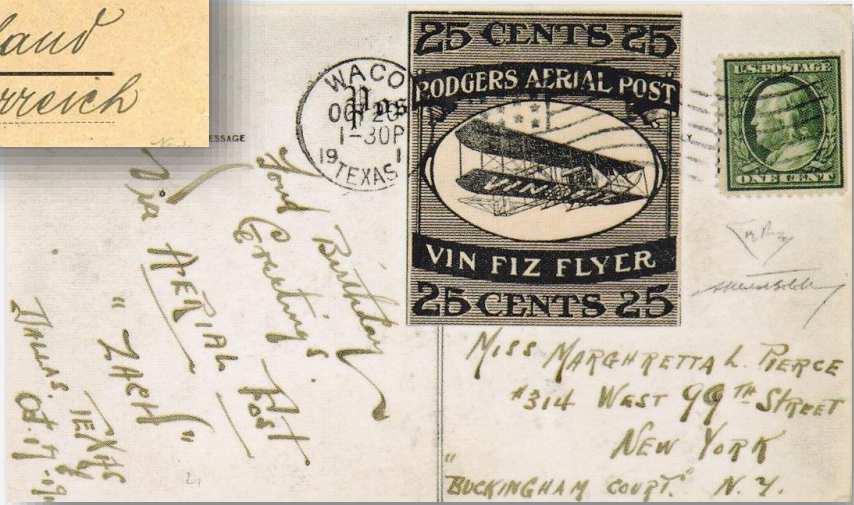 land
rreich
ESSAGE
WACO
OCT 20
1-30P
19 1
TEXAS
25 CENTS 25
RODGERS AERIAL POST
VIN FIZ
VIN FIZ FLYER
25 CENTS 25
U.S. POSTAGE
ONE CENT
Fond Birthday
Greetings.
Via AERIAL Post
"ZACH"
DALLAS. TEXAS
Oct. 17-191
MISS MARGHRETTA L. PIERCE
#314 WEST 99TH STREET
NEW YORK
"BUCKINGHAM COURT." N.Y.